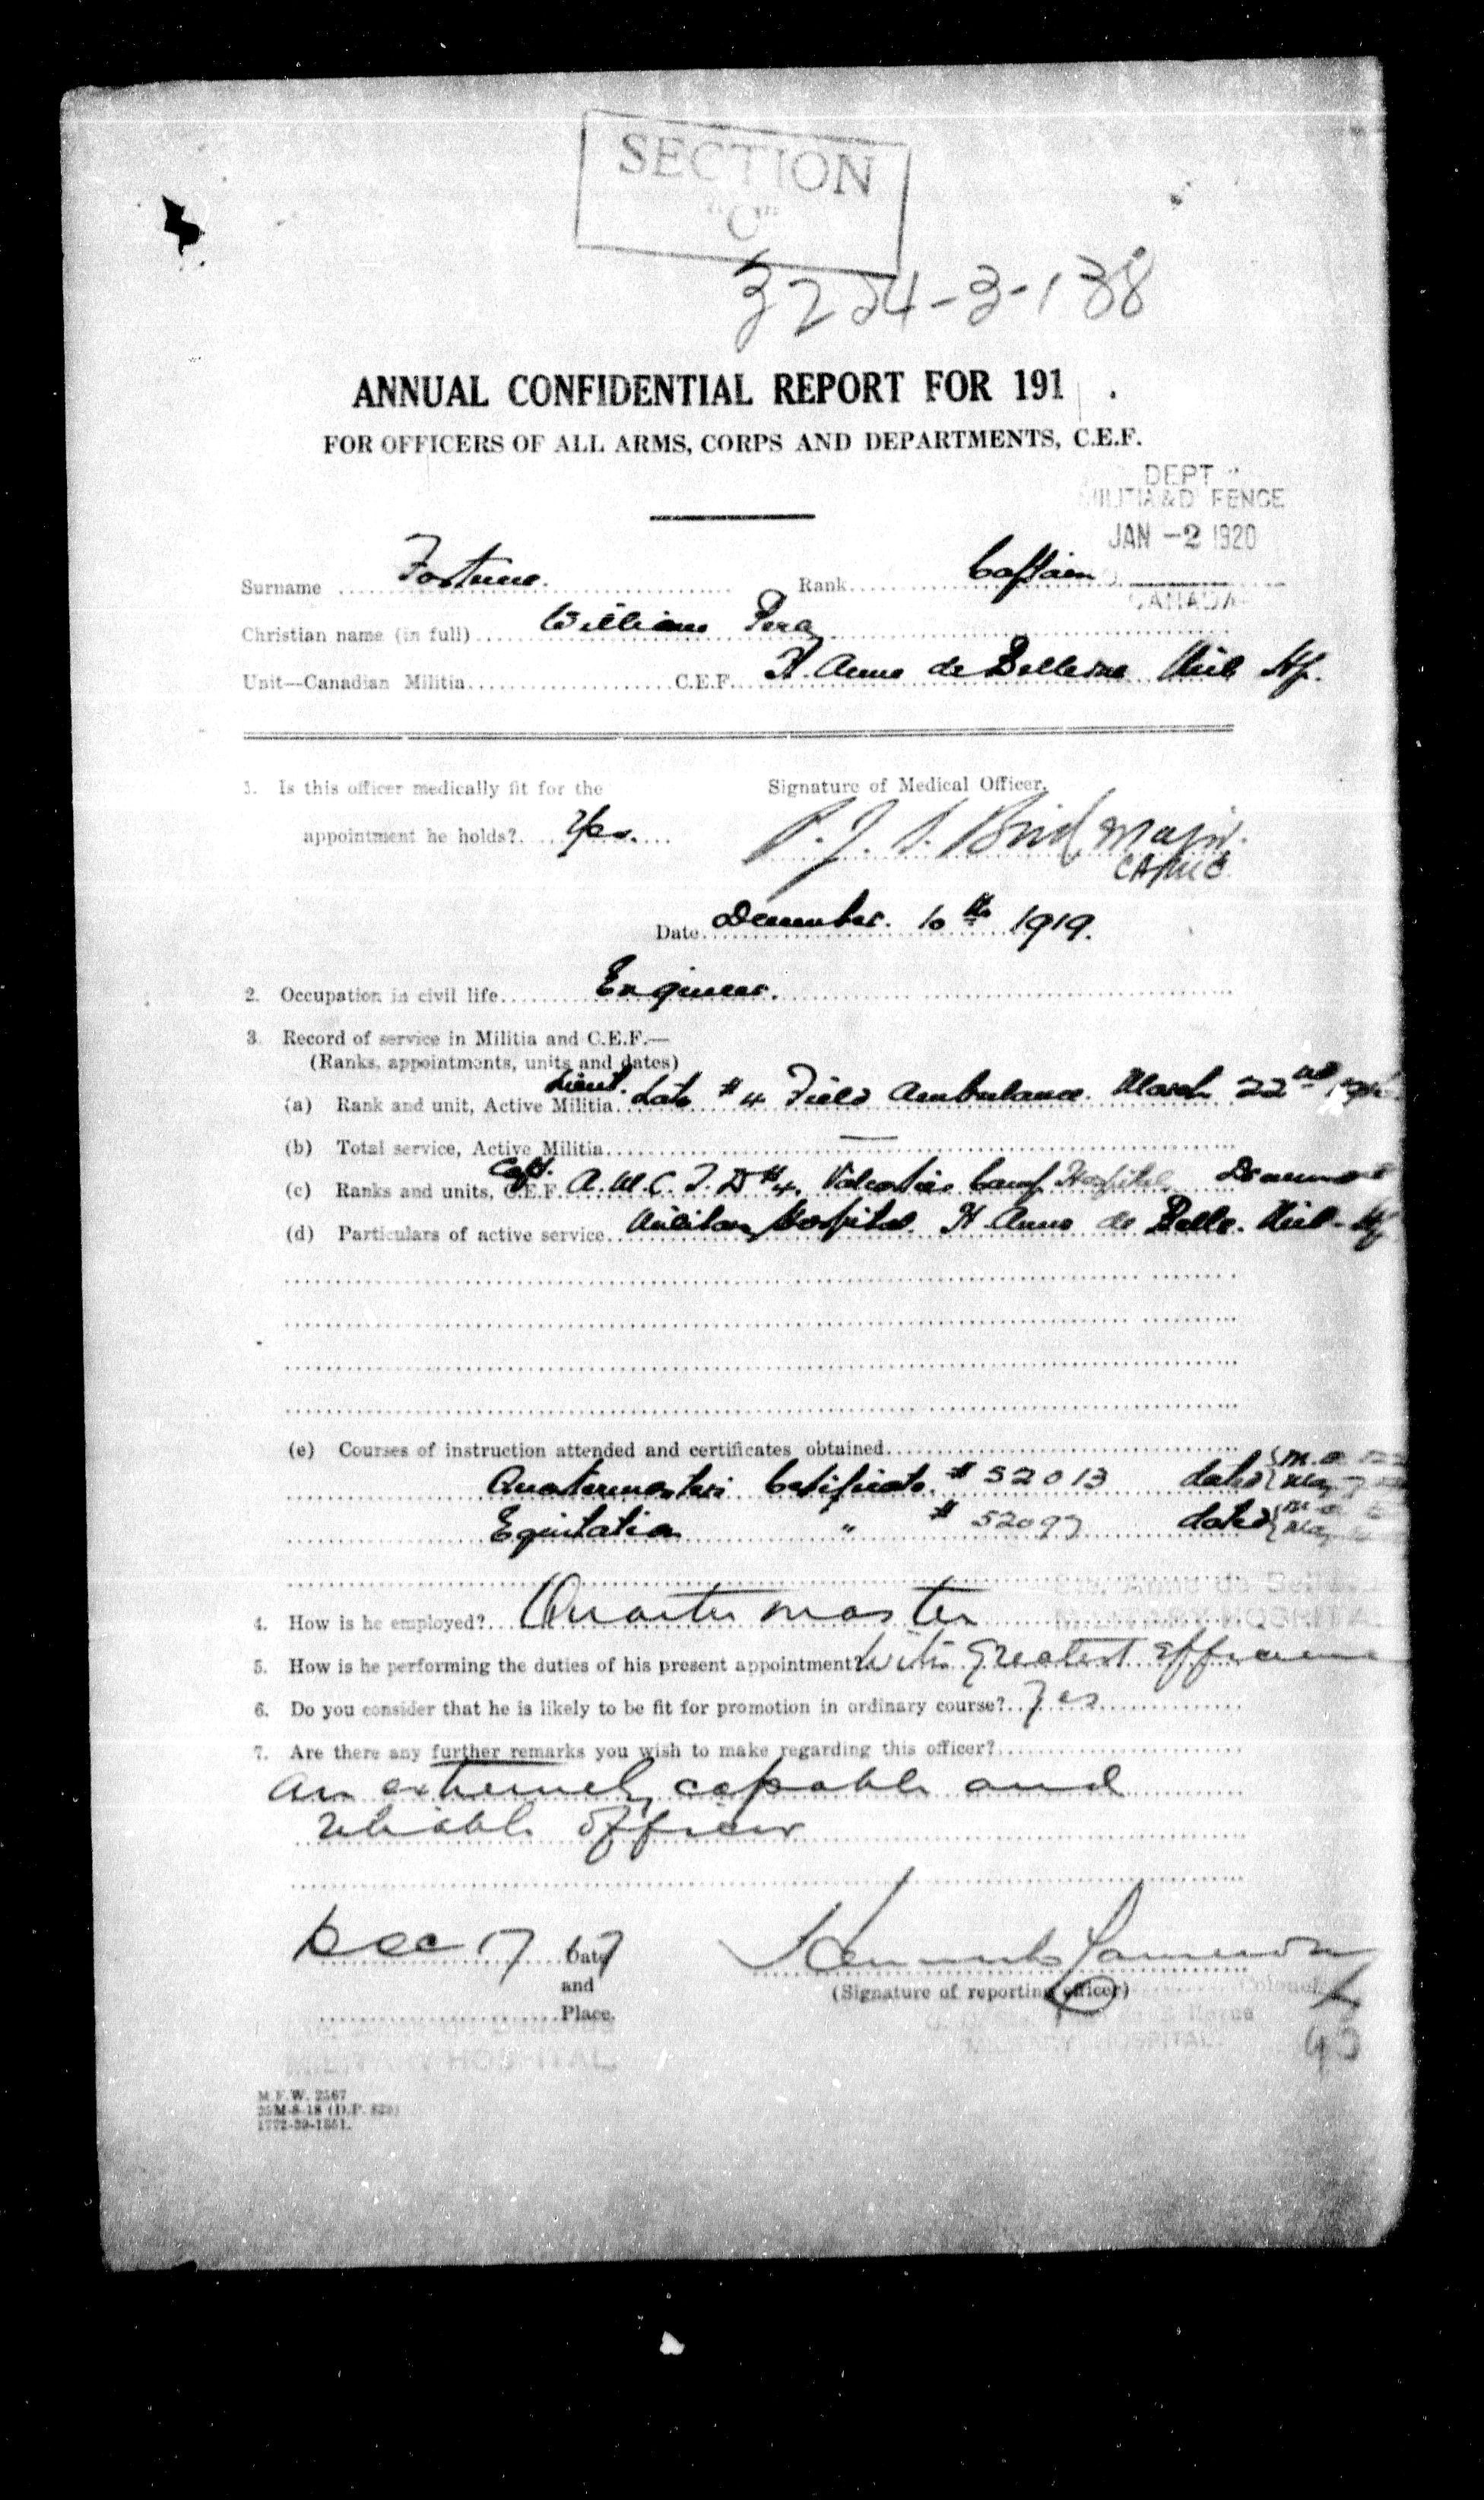 SECTION
"C"
3224-3-138
ANNUAL CONFIDENTIAL REPORT FOR 191 .
FOR OFFICERS OF ALL ARMS, CORPS AND DEPARTMENTS, C.E.F.
DEPT
MILITIA & D FENCE
JAN -2 1920
CANADA
Surname Fortune. Rank Captain
Christian name (in full) William
Unit—Canadian Militia C.E.F. St. Anne de Bellevue Mil. Hp.
1. Is this officer medically fit for the
appointment he holds? Yes.
Signature of Medical Officer.
Major.
CAMC
Date December 10th 1919.
2. Occupation in civil life Engineer.
3 Record of service in Militia and C.E.F.—
(Ranks, appointments, units and dates)
(a) Rank and unit, Active Militia Lieut. #4 Field Ambulance. March 22nd
(b) Total service, Active Militia —
(c) Ranks and units, C.E.F. Capt. A.M.C.T.D #4. Valcartier Camp Hospital
(d) Particulars of active service Military Hospital. St. Anne de Belle. Mil. Hp
(e) Courses of instruction attended and certificates obtained
Quartermasters Certificate. # 52013 dated
Equitation " # 52097 dated
4. How is he employed? Quartermaster
5. How is he performing the duties of his present appointment? With greatest
6. Do you consider that he is likely to be fit for promotion in ordinary course? Yes
7. Are there any further remarks you wish to make regarding this officer?
An extremely capable and
reliable officer
Dec 17 Date
and
Place.
(Signature of reporting officer)
Colonel
MILITARY HOSPITAL
MILITARY HOSPITAL
M.F.W. 2567
25M-8-18 (D.P. 820)
1772-39-1851.